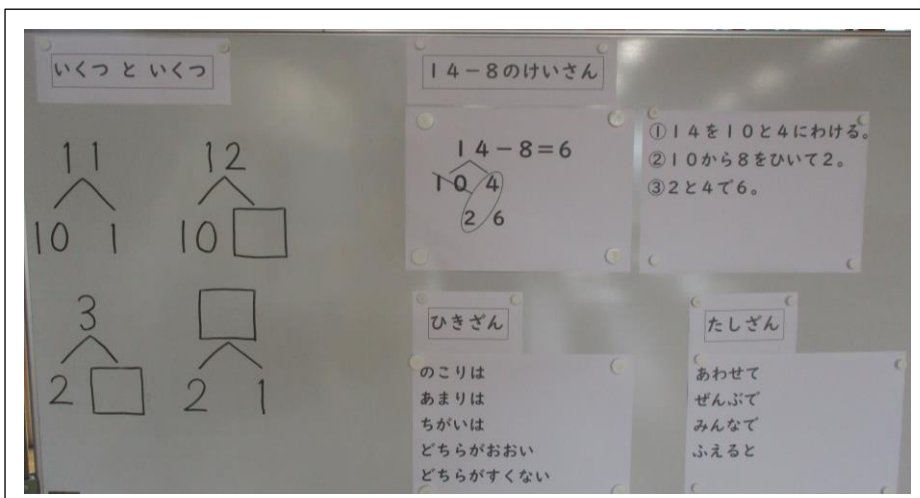 いくつ と いくつ
11
10 1
12
10
3
2
2 1
14-8のけいさん
14-8=6
10 4
2 6
①14を10と4にわける。
②10から8をひいて2。
③2と4で6。
ひきざん
のこりは
あまりは
ちがいは
どちらがおおい
どちらがすくない
たしざん
あわせて
ぜんぶで
みんなで
ふえると